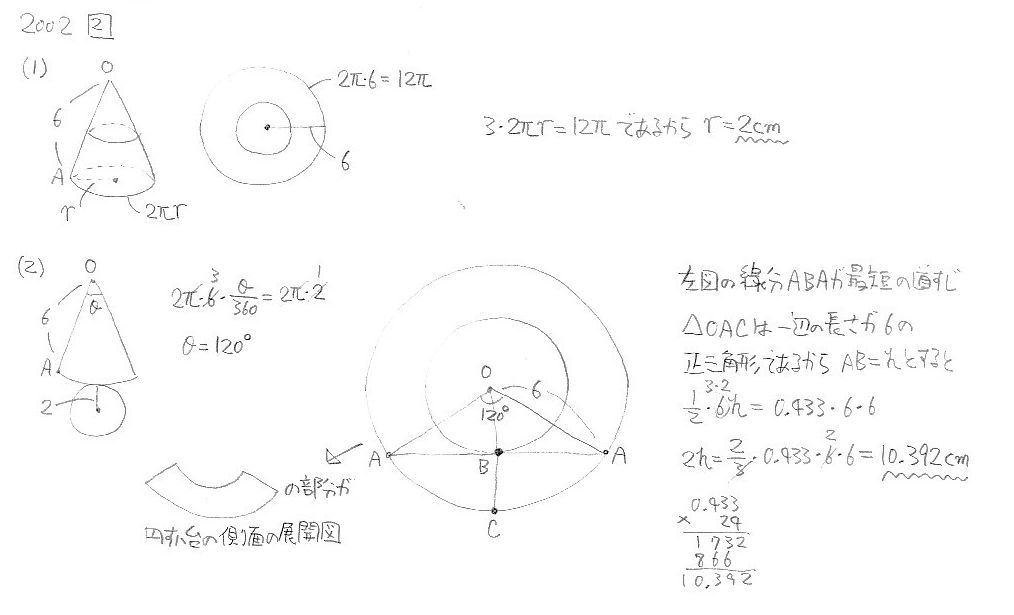 2002 2
(1)
O
6
A
r
2πr
2π・6=12π
6
3・2πr=12πであるから r=2cm
(2)
O
θ
6
A
2
2π・6・θ/360=2π・2
3
1
θ=120°
O
6
120°
A
B
A
C
の部分が
円すい台の側面の展開図
左図の線分ABAが最短の道すじ
△OACは一辺の長さが6の
正三角形であるから AB=hとすると
3・2
1/2・6h=0.433・6・6
2
2h=2/3・0.433・6・6=10.392cm
0.433
× 24
1732
866
10.392